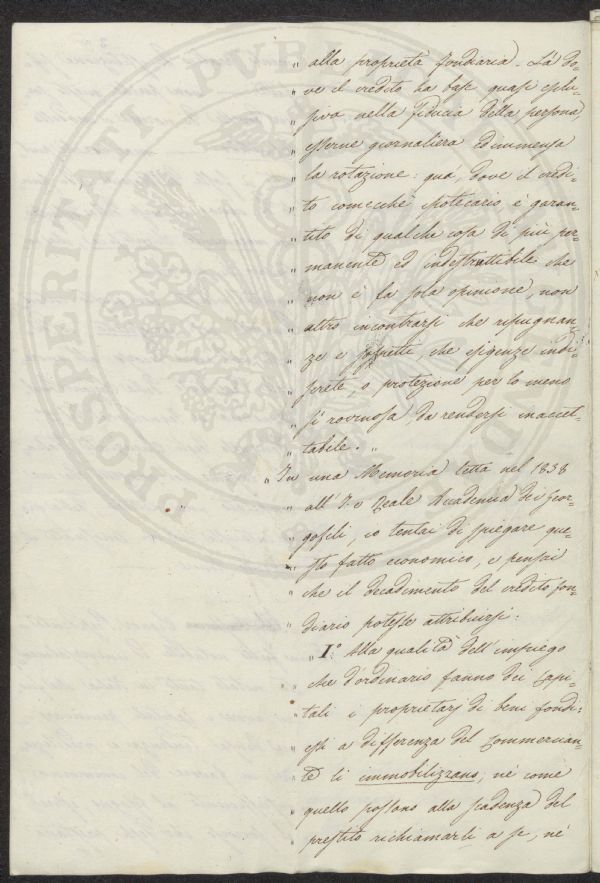 „ alla proprietà fondiaria. Là do-
„ ve il credito ha base quasi esclu-
„ siva nella fiducia della persona
„ esserne giornaliera ed immensa
„ la rotazione: quà, dove il credi-
„ to comecchè ipotecario è garan-
„ tito di qualche cosa di più per-
„ manente ed indestruttibile che
„ non è la sola opinione, non
„ altro incontrarsi che ripugnan-
„ ze e sospetti, che esigenze indi-
„ screte, o protezione per lo meno
„ sì rovinosa da rendersi inaccet-
„ tabile. „
„ In una Memoria letta nel 1838
„ all' I. e Reale Accademia dei Geor-
„ gofili, io tentai di spiegare que-
„ sto fatto economico, e pensai
„ che il decadimento del credito fon-
„ diario potesse attribuirsi:
„ I.° Alla qualità dell'impiego
„ che d'ordinario fanno dei capi-
„ tali i proprietarj di beni fondi:
„ essi a differenza del commercian-
„ te li immobilizzano; nè come
„ quello possono alla scadenza del
„ prestito richiamarli a se, nè
PROSPERITATI PUBLICAE